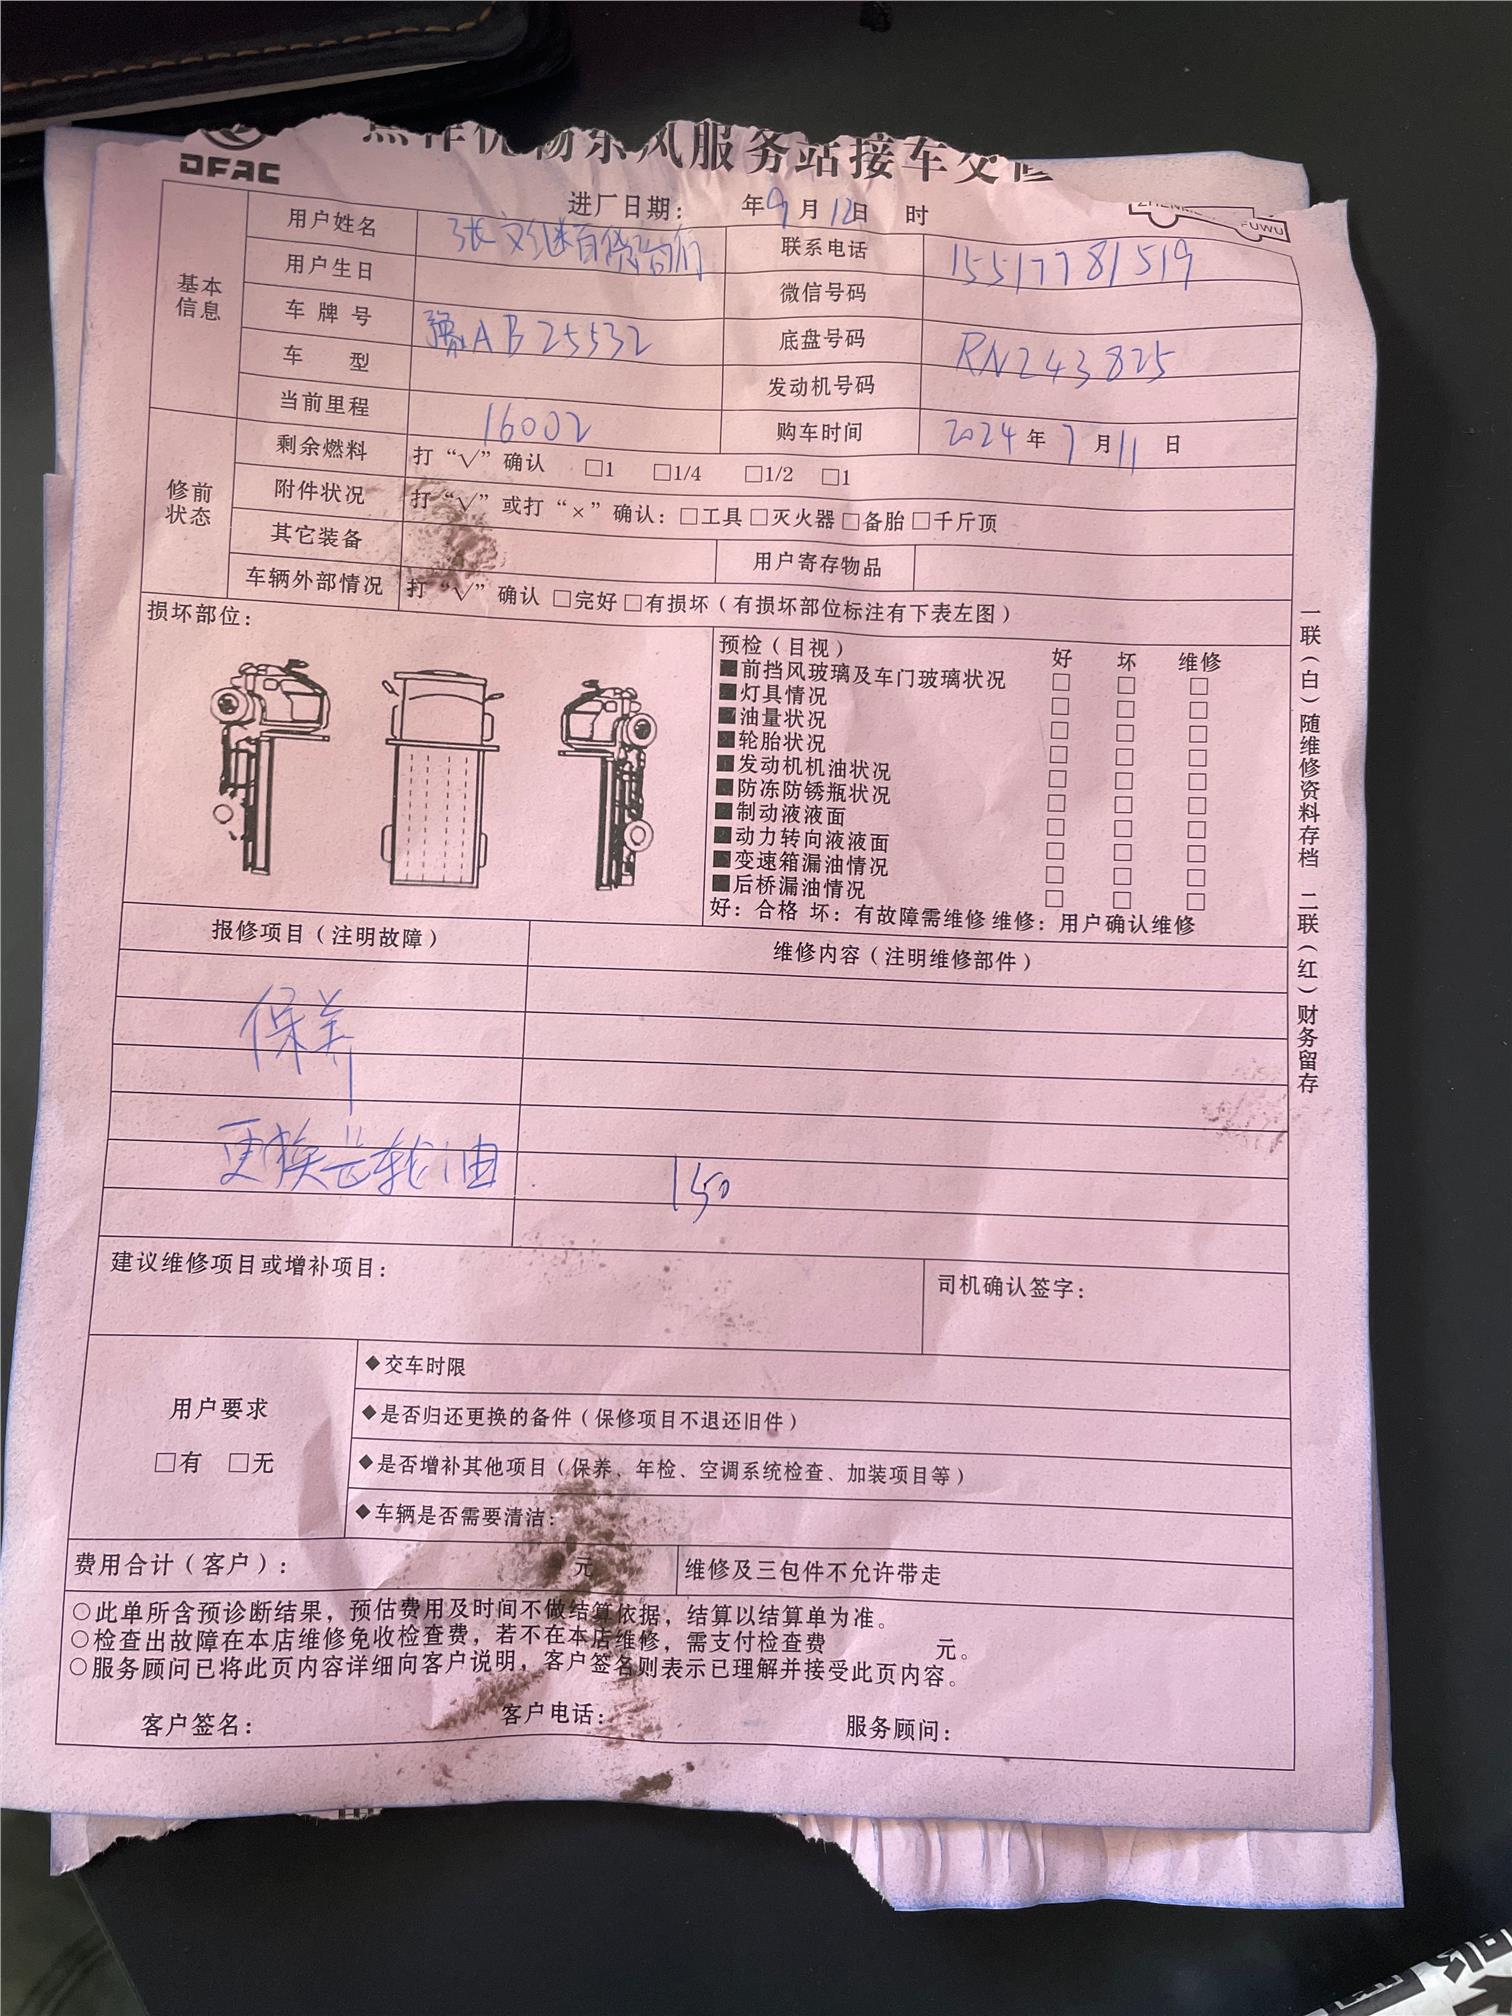 DFAC
东风服务站接车交修
进厂日期： 年9月12日 时
ZHENRE FUWU
基本信息
用户姓名 张文
联系电话 15517781519
用户生日
微信号码
车牌号 豫AB25532
底盘号码 RN243825
车 型
发动机号码
当前里程 16002
购车时间 2024年7月11日
修前状态
剩余燃料 打“√”确认 □1 □1/4 □1/2 □1
附件状况 打“√”或打“×”确认：□工具□灭火器□备胎□千斤顶
其它装备
用户寄存物品
车辆外部情况 打“√”确认 □完好□有损坏（有损坏部位标注有下表左图）
损坏部位：
预检（目视） 好 坏 维修
■前挡风玻璃及车门玻璃状况 □ □ □
■灯具情况 □ □ □
■油量状况 □ □ □
■轮胎状况 □ □ □
■发动机机油状况 □ □ □
■防冻防锈瓶状况 □ □ □
■制动液液面 □ □ □
■动力转向液液面 □ □ □
■变速箱漏油情况 □ □ □
■后桥漏油情况 □ □ □
好：合格 坏：有故障需维修 维修：用户确认维修
一联（白）随维修资料存档 二联（红）财务留存
报修项目（注明故障）
维修内容（注明维修部件）
保养
更换齿轮油 150
建议维修项目或增补项目：
司机确认签字：
用户要求
□有 □无
◆交车时限
◆是否归还更换的备件（保修项目不退还旧件）
◆是否增补其他项目（保养、年检、空调系统检查、加装项目等）
◆车辆是否需要清洁：
费用合计（客户）： 元
维修及三包件不允许带走
○此单所含预诊断结果，预估费用及时间不做结算依据，结算以结算单为准。
○检查出故障在本店维修免收检查费，若不在本店维修，需支付检查费 元。
○服务顾问已将此页内容详细向客户说明，客户签名则表示已理解并接受此页内容。
客户签名： 客户电话： 服务顾问：